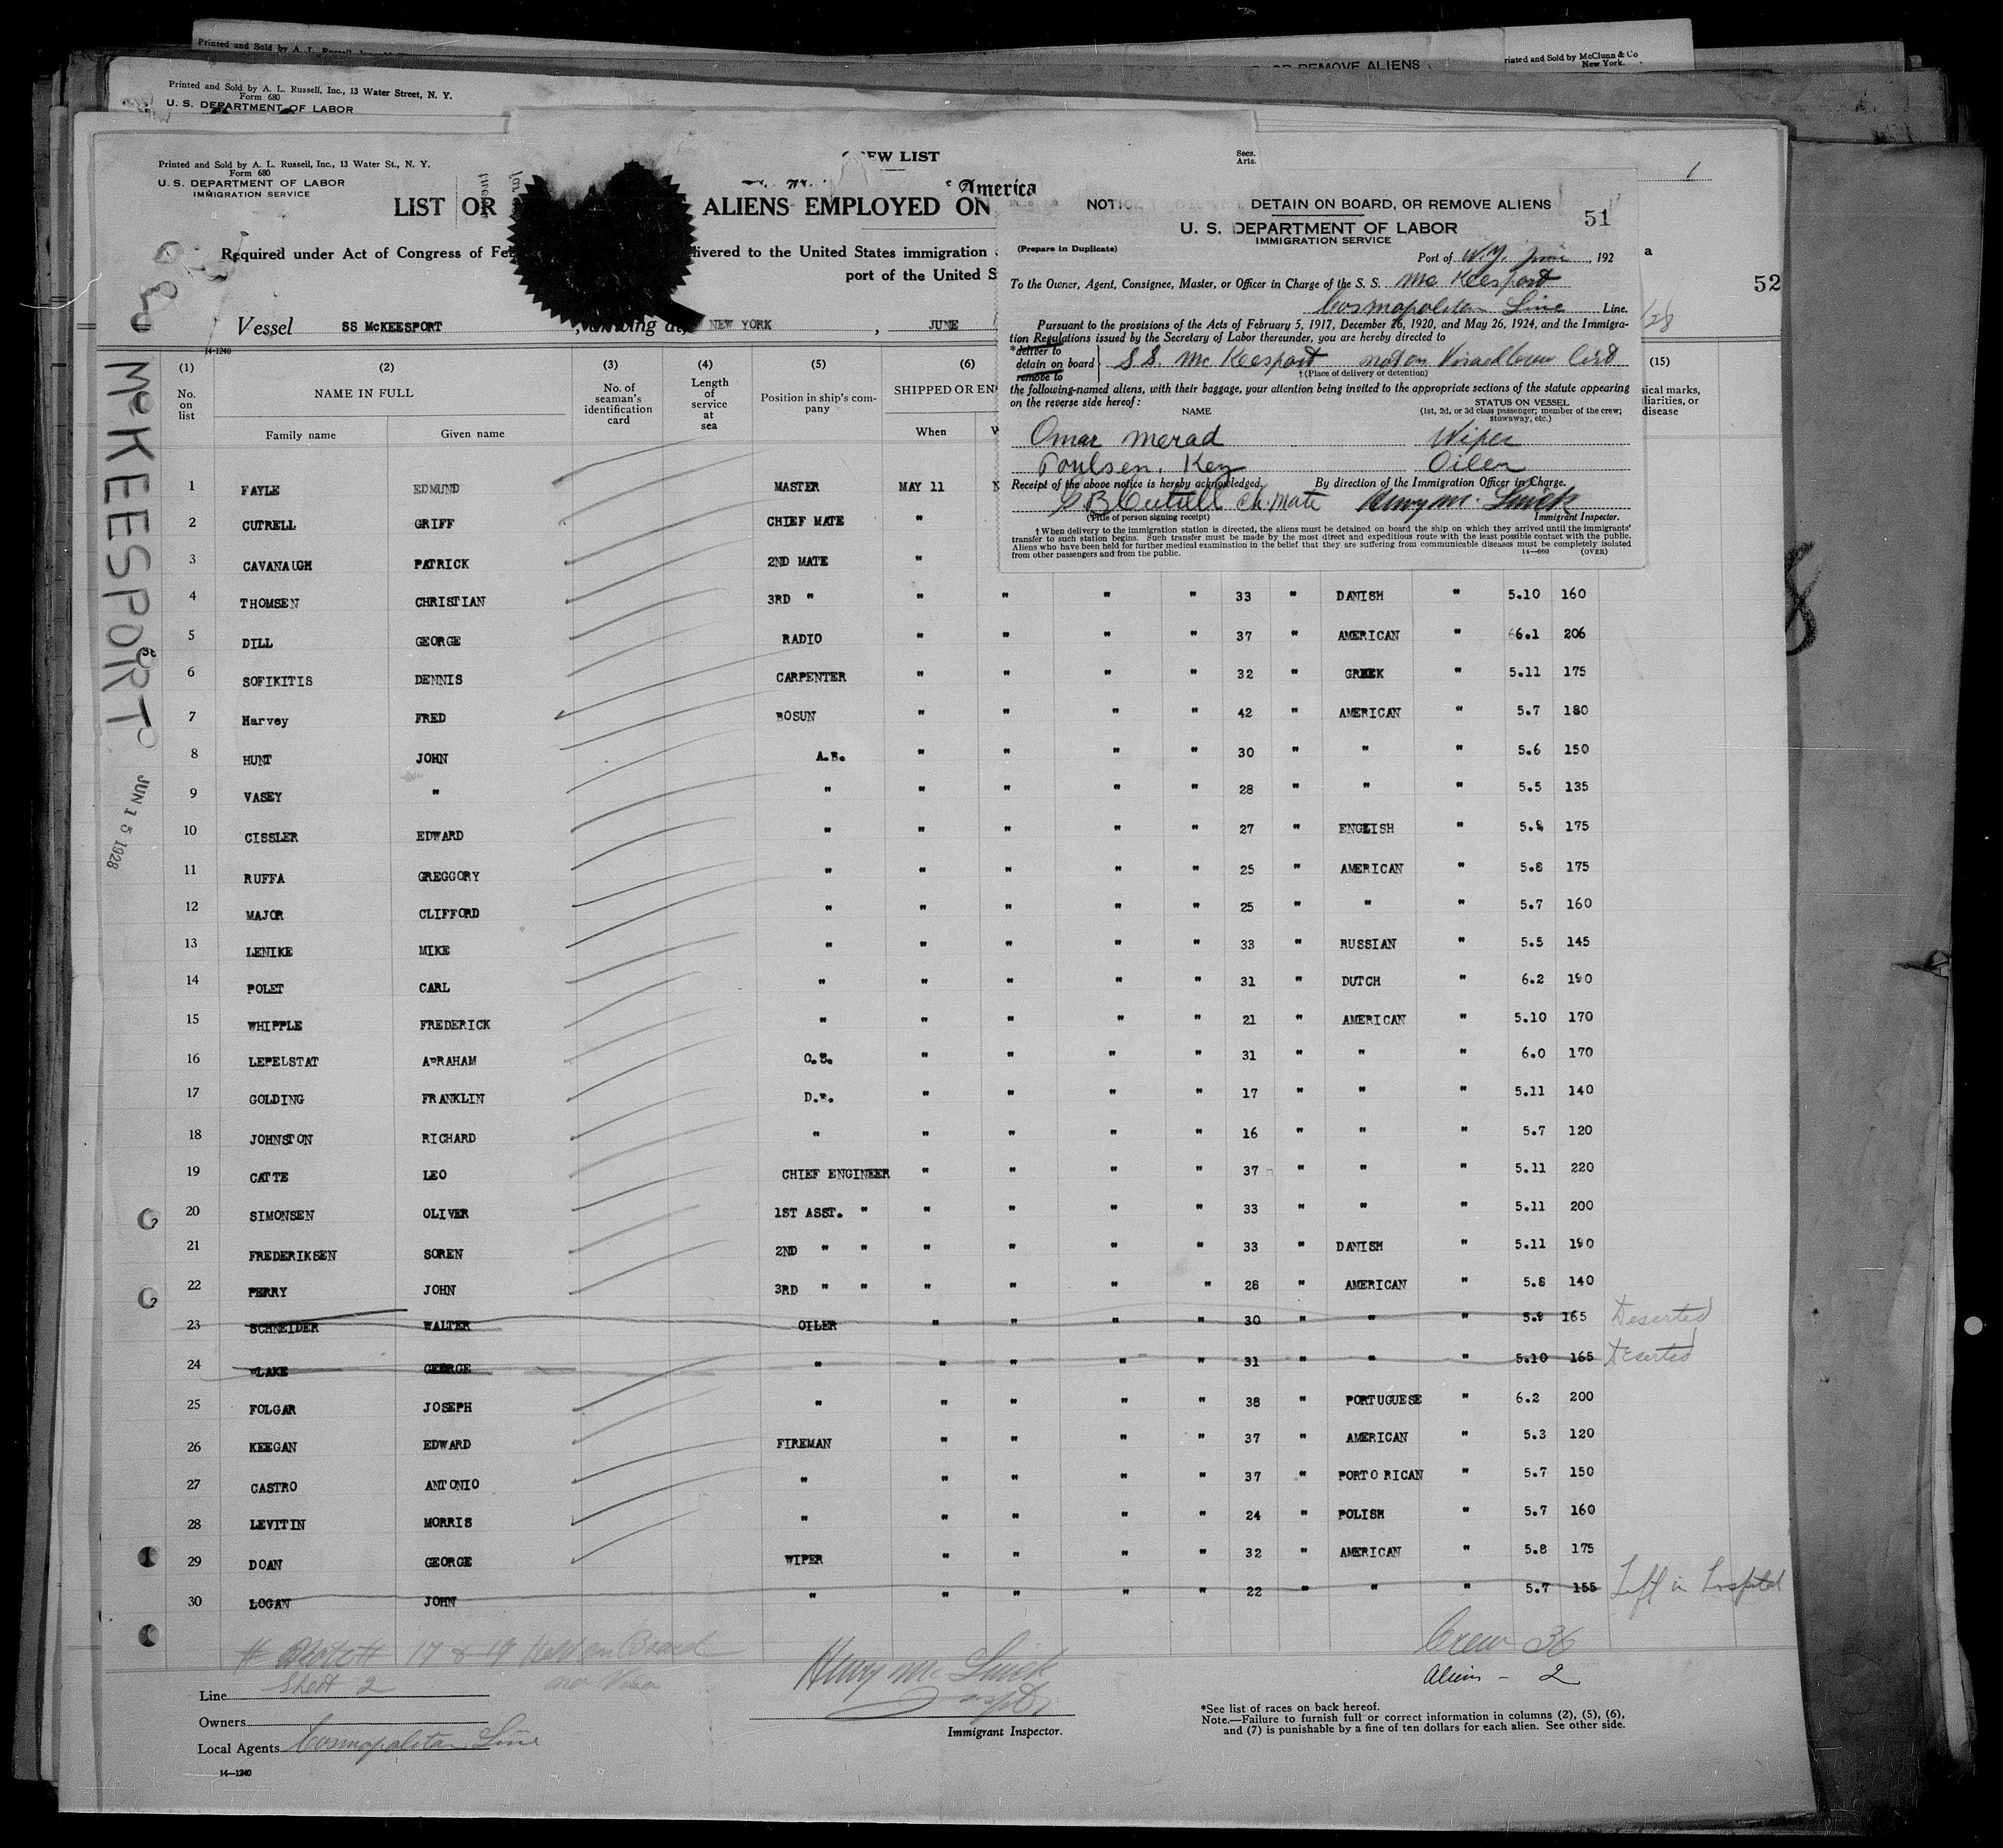 Printed and Sold by A. L. Russell, Inc., 13 Water Street, N. Y.
Form 680
U. S. DEPARTMENT OF LABOR
OR REMOVE ALIENS
Printed and Sold by McClunn & Co
New York.
Printed and Sold by A. L. Russell, Inc., 13 Water St., N. Y.
Form 680
U. S. DEPARTMENT OF LABOR
IMMIGRATION SERVICE
CREW LIST
Secs.
Arts.
1
America
LIST OR ALIENS EMPLOYED ON
Required under Act of Congress of Fe livered to the United States immigration
port of the United S
52
Vessel SS McKEESPORT , arriving at NEW YORK , JUNE
14-1240
NOTIC DETAIN ON BOARD, OR REMOVE ALIENS
51
U. S. DEPARTMENT OF LABOR
IMMIGRATION SERVICE
(Prepare in Duplicate)
Port of N.Y. June , 192
To the Owner, Agent, Consignee, Master, or Officer in Charge of the S. S. Mc Keesport
Cosmopolitan Line Line.
Pursuant to the provisions of the Acts of February 5, 1917, December 26, 1920, and May 26, 1924, and the Immigra-
tion Regulations issued by the Secretary of Labor thereunder, you are hereby directed to
*deliver to
detain on board S.S. Mc Keesport not on Visaed Crew List
remove to
†(Place of delivery or detention)
the following-named aliens, with their baggage, your attention being invited to the appropriate sections of the statute appearing
on the reverse side hereof:
NAME STATUS ON VESSEL
(1st, 2d, or 3d class passenger; member of the crew;
stowaway, etc.)
Omar Merad Wiper
Poulsen. Key Oiler
Receipt of the above notice is hereby acknowledged. By direction of the Immigration Officer in Charge.
G B Cutrell Ch. Mate Henry M. Luick
(Title of person signing receipt) Immigrant Inspector.
†When delivery to the immigration station is directed, the aliens must be detained on board the ship on which they arrived until the immigrants'
transfer to such station begins. Such transfer must be made by the most direct and expeditious route with the least possible contact with the public.
Aliens who have been held for further medical examination in the belief that they are suffering from communicable diseases must be completely isolated
from other passengers and from the public.
14—660 (OVER)
McKEESPORT
JUN 15 1928
(1) (2) (3) (4) (5) (6) (15)
No. on list
NAME IN FULL
Family name Given name
No. of seaman's identification card
Length of service at sea
Position in ship's company
SHIPPED OR EN
When
sical marks,
liarities, or
disease
1 FAYLE EDMUND MASTER MAY 11
2 CUTRELL GRIFF CHIEF MATE "
3 CAVANAUGH PATRICK 2ND MATE "
4 THOMSEN CHRISTIAN 3RD " " " " " 33 " DANISH " 5.10 160
5 DILL GEORGE RADIO " " " " 37 " AMERICAN " 6.1 206
6 SOFIKITIS DENNIS CARPENTER " " " " 32 " GREEK " 5.11 175
7 Harvey FRED BOSUN " " " " 42 " AMERICAN " 5.7 180
8 HUNT JOHN A.B. " " " " 30 " " " 5.6 150
9 VASEY " " " " " " 28 " " " 5.5 135
10 CISSLER EDWARD " " " " " 27 " ENGLISH " 5.8 175
11 RUFFA GREGGORY " " " " " 25 " AMERICAN " 5.8 175
12 MAJOR CLIFFORD " " " " " 25 " " " 5.7 160
13 LENIKE MIKE " " " " " 33 " RUSSIAN " 5.5 145
14 POLET CARL " " " " " 31 " DUTCH " 6.2 190
15 WHIPPLE FREDERICK " " " " " 21 " AMERICAN " 5.10 170
16 LEPELSTAT ABRAHAM O.S. " " " " 31 " " " 6.0 170
17 GOLDING FRANKLIN D.B. " " " " 17 " " " 5.11 140
18 JOHNSTON RICHARD " " " " " 16 " " " 5.7 120
19 CATTE LEO CHIEF ENGINEER " " " " 37 " " " 5.11 220
20 SIMONSEN OLIVER 1ST ASST. " " " " " 33 " " " 5.11 200
21 FREDERIKSEN SOREN 2ND " " " " " " 33 " DANISH " 5.11 190
22 PERRY JOHN 3RD " " " " " " 28 " AMERICAN " 5.8 140
23 SCHNEIDER WALTER OILER " " " " 30 " " " 5.8 165 Deserted
24 BLAKE GEORGE " " " " " 31 " " " 5.10 165 Deserted
25 FOLGAR JOSEPH " " " " " 38 " PORTUGUESE " 6.2 200
26 KEEGAN EDWARD FIREMAN " " " " 37 " AMERICAN " 5.3 120
27 CASTRO ANTONIO " " " " " 37 " PORTO RICAN " 5.7 150
28 LEVITIN MORRIS " " " " " 24 " POLISH " 5.7 160
29 DOAN GEORGE WIPER " " " " 32 " AMERICAN " 5.8 175
30 LOGAN JOHN " " " " " 22 " " " 5.7 155 Left in hospital
# Note # 17 & 19 Held on Board
Sheet 2 no Visa
Crew 36
Aliens - 2
Henry M. Luick
Inspt.
Immigrant Inspector.
Line
Owners
Local Agents Cosmopolitan Line
14—1240
*See list of races on back hereof.
Note.—Failure to furnish full or correct information in columns (2), (5), (6),
and (7) is punishable by a fine of ten dollars for each alien. See other side.